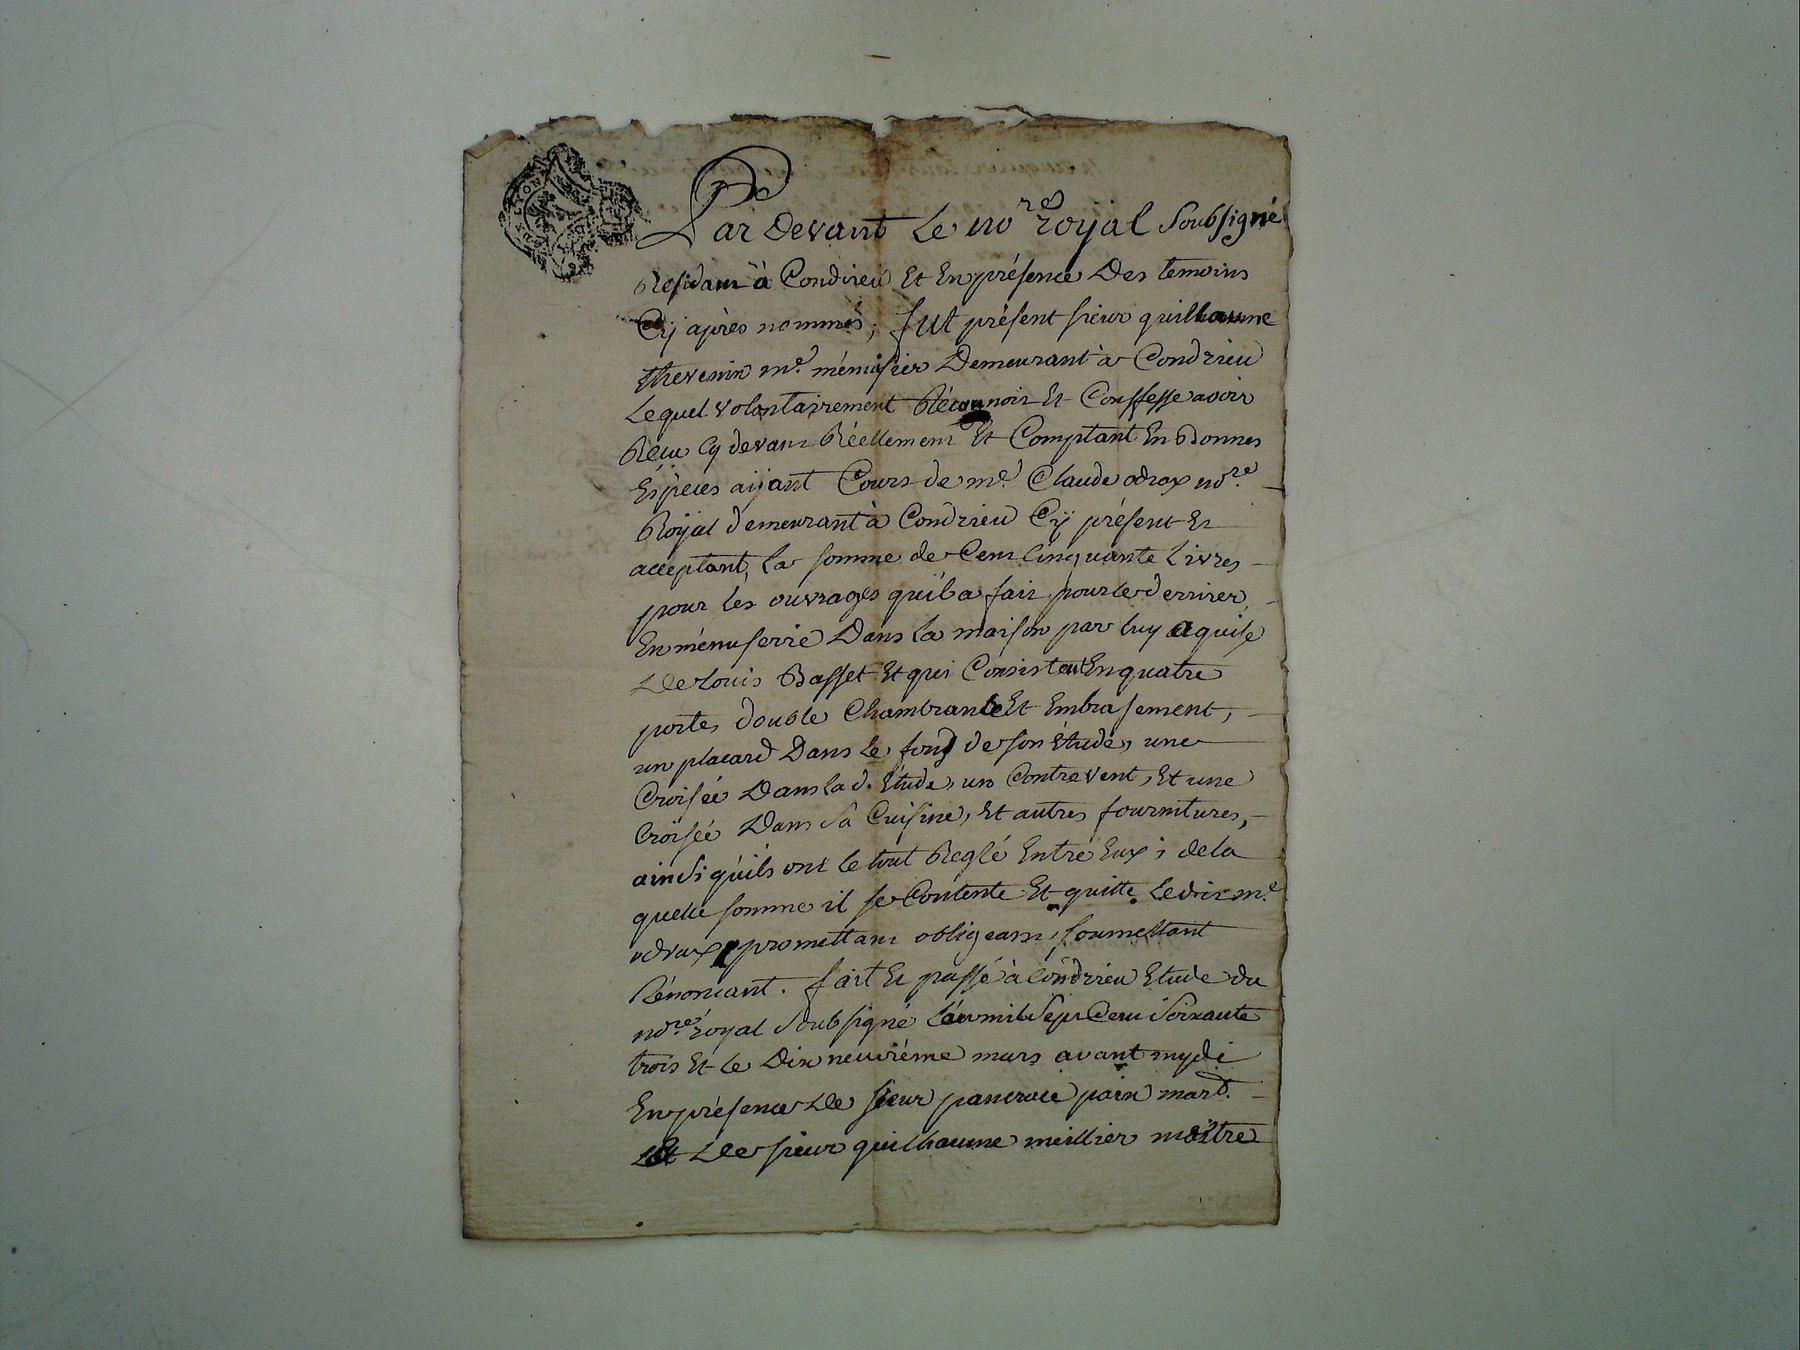 LYON
Par devant Le no.re royal Soubsigné
Residant à Condrieu Et En présence Des temoins
Cy après nommés, fut présent sieur guilhaume
thevenin me. ménusier Demeurant à Condrieu
Lequel volontairement Réconnoit Et Confesse avoir
Réçu Cy devant Réellement Et Comptant En Bonnes
Espèces aÿant Cours de me. Claude odrax nore.
Royal demeurant à Condrieu Cÿ présent Et
acceptant, la somme de Cent Cinquante Livres
pour les ouvrages qu'il a fait pour le dernier
En ménuserie Dans la maison par luy aquise
De Louis Basset Et qui Consistent En quatre
portes double Chambranle Et Embrasement,
un placard Dans le fond de son Etude, une
Croisée Dans lad. Etude, un Contrevent, Et une
Croisée Dans sa Cuisine, Et autres fournitures,
ainsi qu'ils ont le tout Reglé Entre Eux ; de la
quelle somme il se Contente Et quitte Ledit me.
odrax promettant obligeant, soumettant
Rénoncant. fait Et passé à Condrieu Etude du
nore. royal Soubsigné L'an mil Sept Cent Soixante
trois Et le Dix neuvième mars avant mydi
En présence de sieur pancrace pain mard.
Et De sieur guilhaume meillier maître